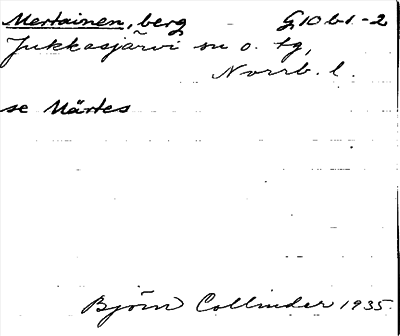 Mertainen, berg G10b1-2
Jukkasjärvi sn o. tg,
Norrb. l.
se Märtes
Björn Collinder 1935